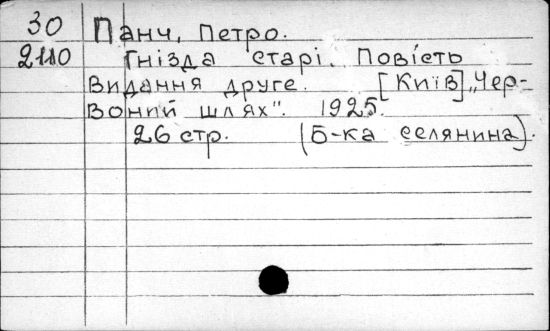 30 Панч, Петро.
2110 Гнізда старі. Повість
Видання друге. [Київ] „Чер-
воний шлях". 1925.
26 стр. (Б-ка селянина).